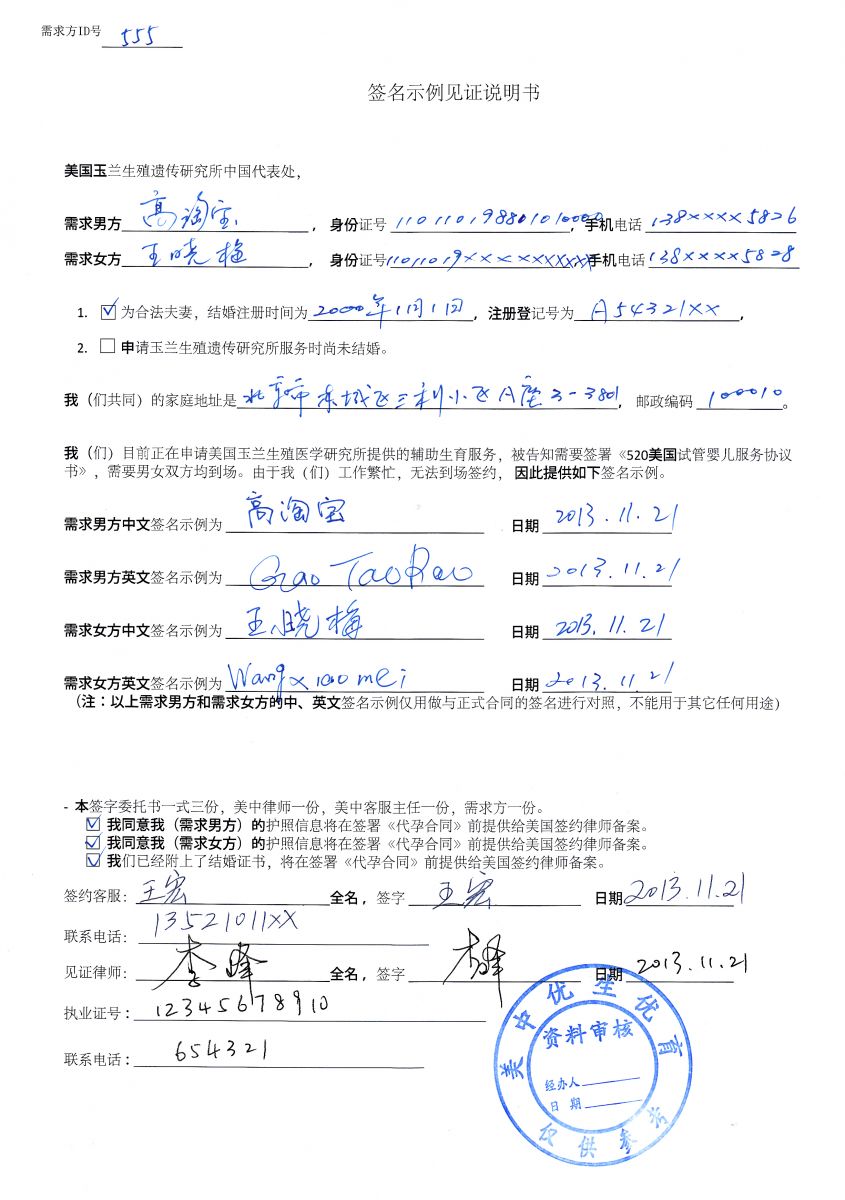 需求方ID号 555
签名示例见证说明书
美国玉兰生殖遗传研究所中国代表处，
需求男方 高淘宝 ，身份证号 110110198801010000，手机电话 138xxxx5826
需求女方 王晓梅 ，身份证号 11011019xxxxxxxxxx，手机电话 138xxxx5828
1. ☑ 为合法夫妻，结婚注册时间为 2000年1月1日 ，注册登记号为 A54321xx ，
2. ☐ 申请玉兰生殖遗传研究所服务时尚未结婚。
我（们共同）的家庭地址是 北京市东城区三利小区A座3-3801 ，邮政编码 100010 。
我（们）目前正在申请美国玉兰生殖医学研究所提供的辅助生育服务，被告知需要签署《520美国试管婴儿服务协议
书》，需要男女双方均到场。由于我（们）工作繁忙，无法到场签约，因此提供如下签名示例。
需求男方中文签名示例为 高淘宝 日期 2013.11.21
需求男方英文签名示例为 Gao TaoBao 日期 2013.11.21
需求女方中文签名示例为 王晓梅 日期 2013.11.21
需求女方英文签名示例为 Wang xiao mei 日期 2013.11.21
（注：以上需求男方和需求女方的中、英文签名示例仅用做与正式合同的签名进行对照，不能用于其它任何用途）
- 本签字委托书一式三份，美中律师一份，美中客服主任一份，需求方一份。
☑ 我同意我（需求男方）的护照信息将在签署《代孕合同》前提供给美国签约律师备案。
☑ 我同意我（需求女方）的护照信息将在签署《代孕合同》前提供给美国签约律师备案。
☑ 我们已经附上了结婚证书，将在签署《代孕合同》前提供给美国签约律师备案。
签约客服：王宏 全名，签字 王宏 日期 2013.11.21
联系电话：13521011XX
见证律师：李峰 全名，签字 李峰 日期 2013.11.21
执业证号：12345678910
联系电话：654321
美中优生优育
资料审核
经办人
日 期
仅供参考